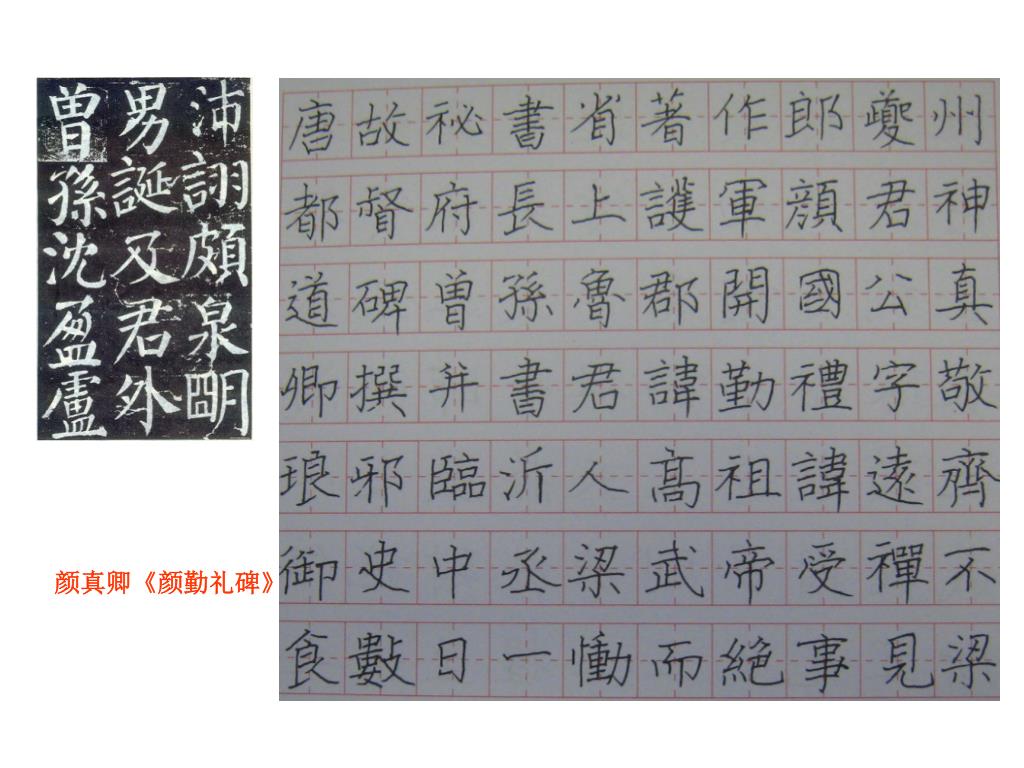 沛詡頗泉明
男誕及君外
曾孫沈盈盧
颜真卿《颜勤礼碑》
唐故祕書省著作郎夔州
都督府長上護軍顏君神
道碑曾孫魯郡開國公真
卿撰并書君諱勤禮字敬
琅邪臨沂人高祖諱遠齊
御史中丞梁武帝受禪不
食數日一慟而絕事見梁